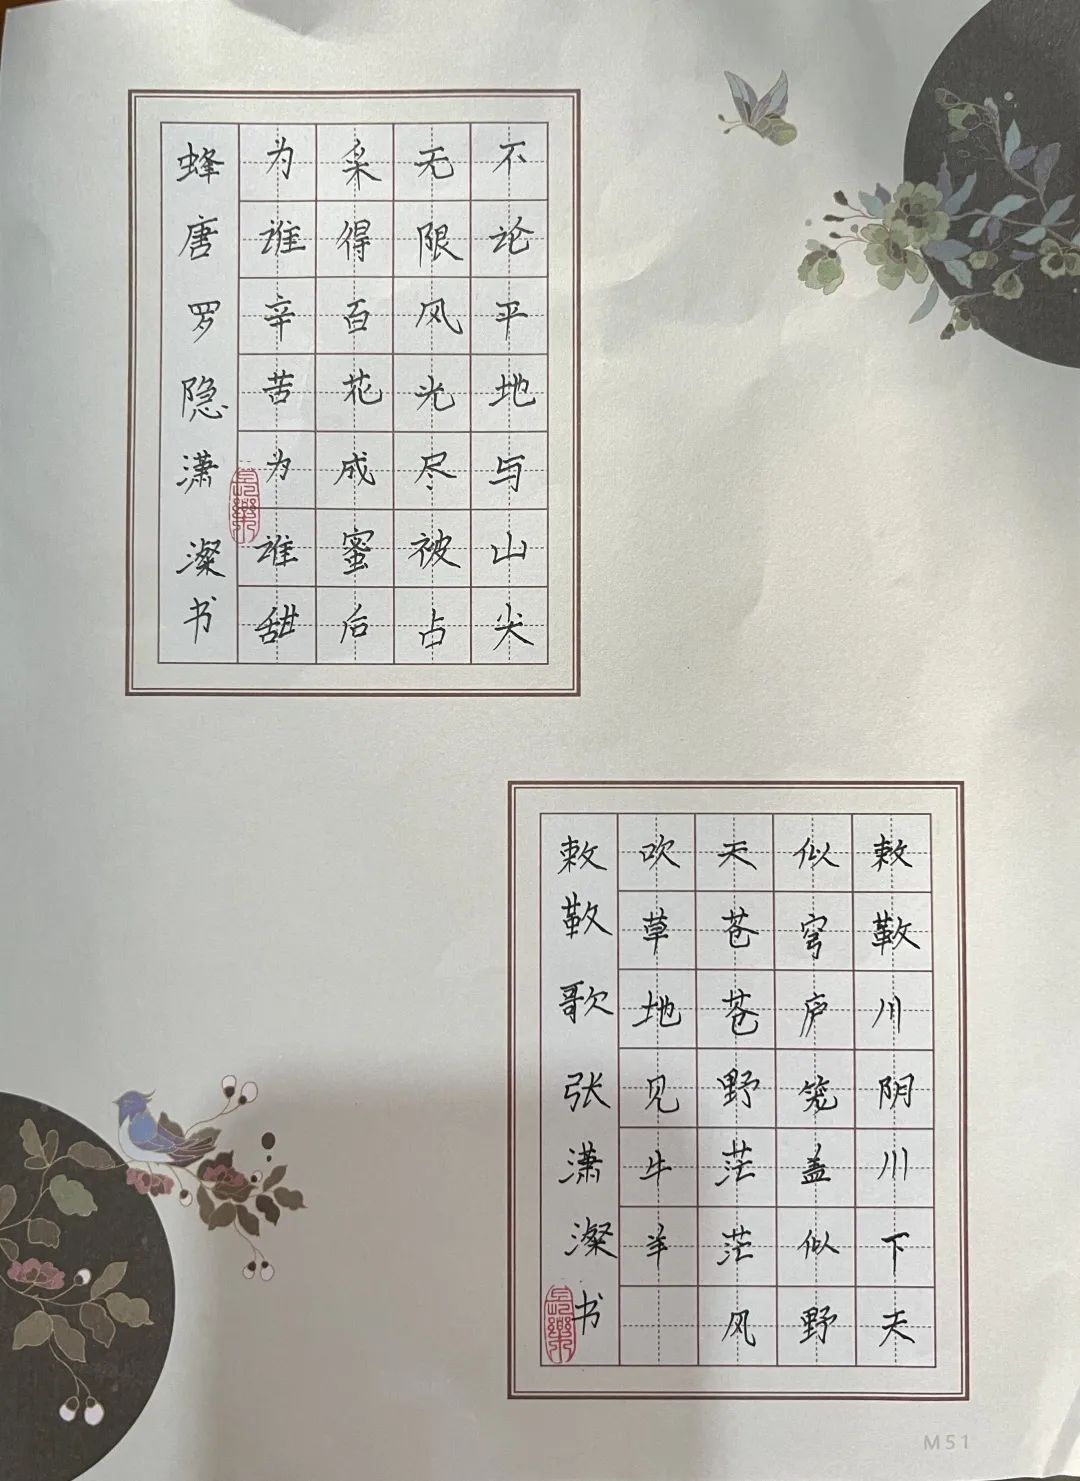 不论平地与山尖
无限风光尽被占
采得百花成蜜后
为谁辛苦为谁甜
蜂唐罗隐潇澯书
長樂
敕勒川阴川下夫
似穹庐笼盖似野
天苍苍野茫茫风
吹草地见牛羊
敕勒歌张潇澯书
長樂
M51